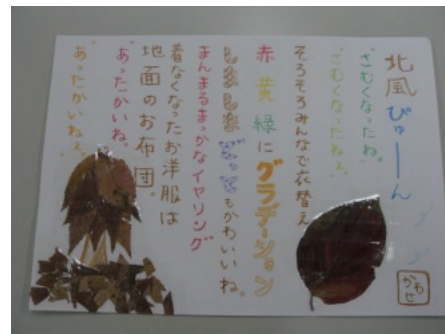 北風ぴゅーーん
“さむくなったね。
“さむくなったねぇ。
そろそろみんなで衣替え
赤黄緑にグラデーション
しましまどってもかわいいね。
まんまるまっかなイヤリング
着なくなったお洋服は
地面のお布団。
“あったかいね。
“あったかいねぇ。
かわせ